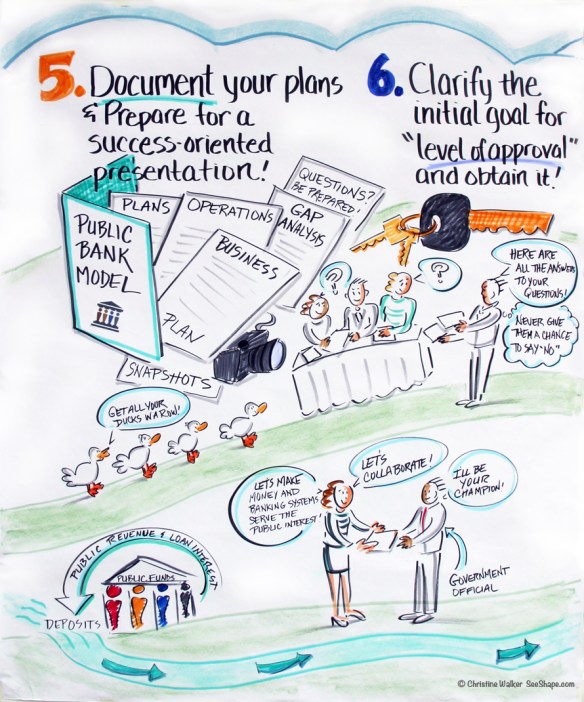 5. Document your plans
& Prepare for a
success-oriented
presentation!
6. Clarify the
initial goal for
"level of approval"
and obtain it!
PUBLIC
BANK
MODEL
PLANS
OPERATIONS
QUESTIONS?
BE PREPARED!
GAP
ANALYSIS
BUSINESS
PLAN
SNAPSHOTS
?
?
HERE ARE
ALL THE ANSWERS
TO YOUR
QUESTIONS!
NEVER GIVE
THEM A CHANCE
TO SAY "NO"
GET ALL YOUR
DUCKS IN A ROW!
LET'S MAKE
MONEY AND
BANKING SYSTEMS
SERVE THE
PUBLIC INTEREST!
LET'S
COLLABORATE!
I'LL BE
YOUR
CHAMPION!
GOVERNMENT
OFFICIAL
PUBLIC REVENUE & LOAN INTEREST
PUBLIC FUNDS
DEPOSITS
© Christina Walker SeeShape.com